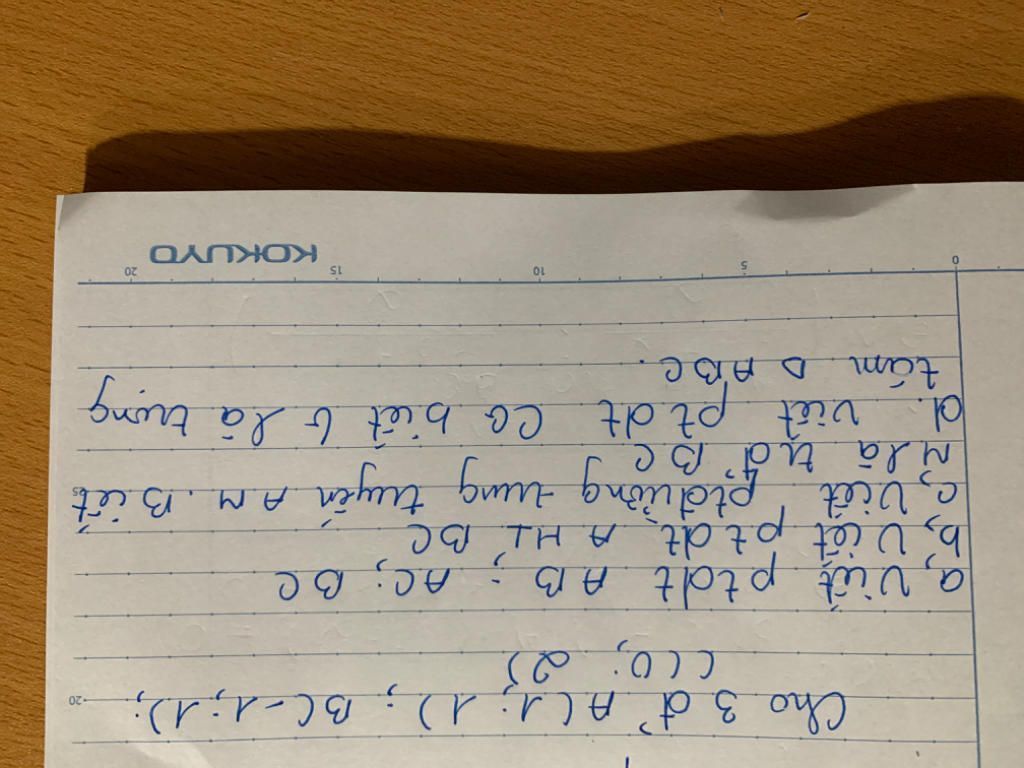 Cho 3 đ' A(1; 1); B(-1; 1);
C(0; 2)
a, Viết ptđt AB; AC; BC
b, Viết ptđt AH⊥ BC
c, Viết ptđường trung tuyến AM. Biết
M là tđ' BC
d. Viết ptđt CG biết G là trung
tâm Δ ABC.
0 5 10 15 20
KOKUYO